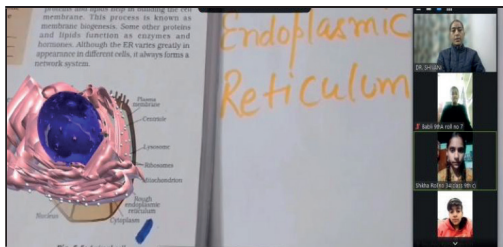 proteins and lipids help in building the cell
membrane. This process is known as
membrane biogenesis. Some other proteins
and lipids function as enzymes and
hormones. Although the ER varies greatly in
appearance in different cells, it always forms a
network system.
Endoplasmic
Reticulum
Plasma
membrane
Centriole
Lysosome
Ribosomes
Mitochondrion
Rough
endoplasmic
reticulum
Cytoplasm
Nucleus
DR. SHIVANI
Babli 9thA roll no 7
Shikha Rollno